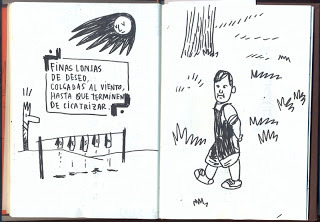 FINAS LONJAS
DE DESEO,
COLGADAS AL VIENTO,
HASTA QUE TERMINEN
DE CICATRIZAR.